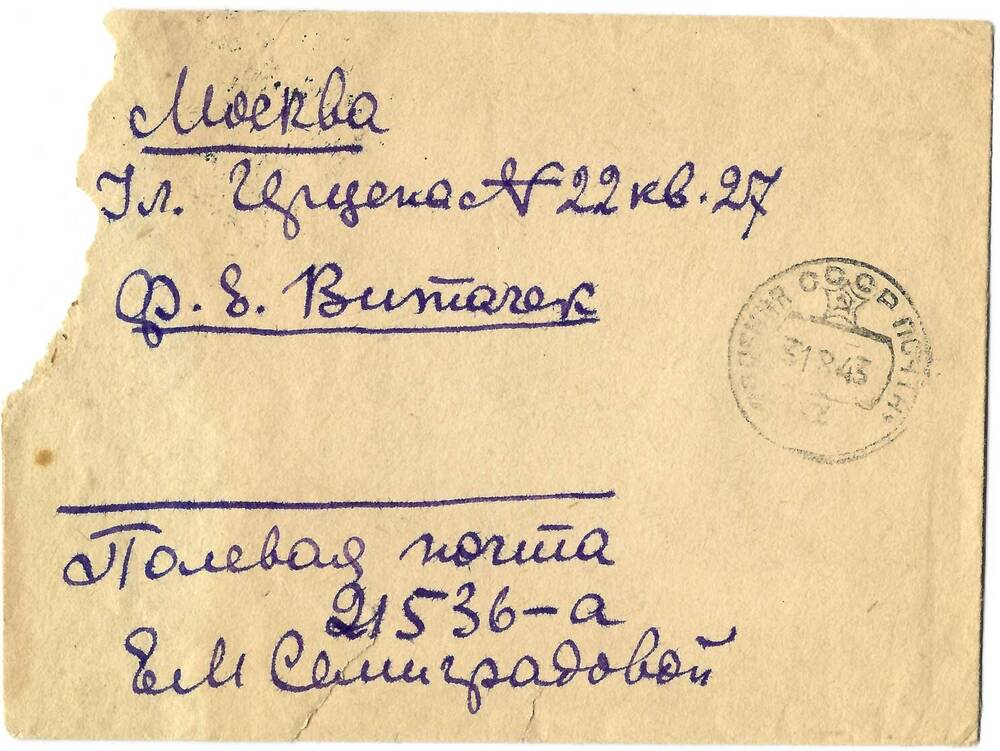 Москва
Ул. Герцена № 22 кв. 27
Ф. Е. Витачек
СССР ПОЧТА
31 8 43
Полевая почта
21536-а
ЕМ Семиградовой